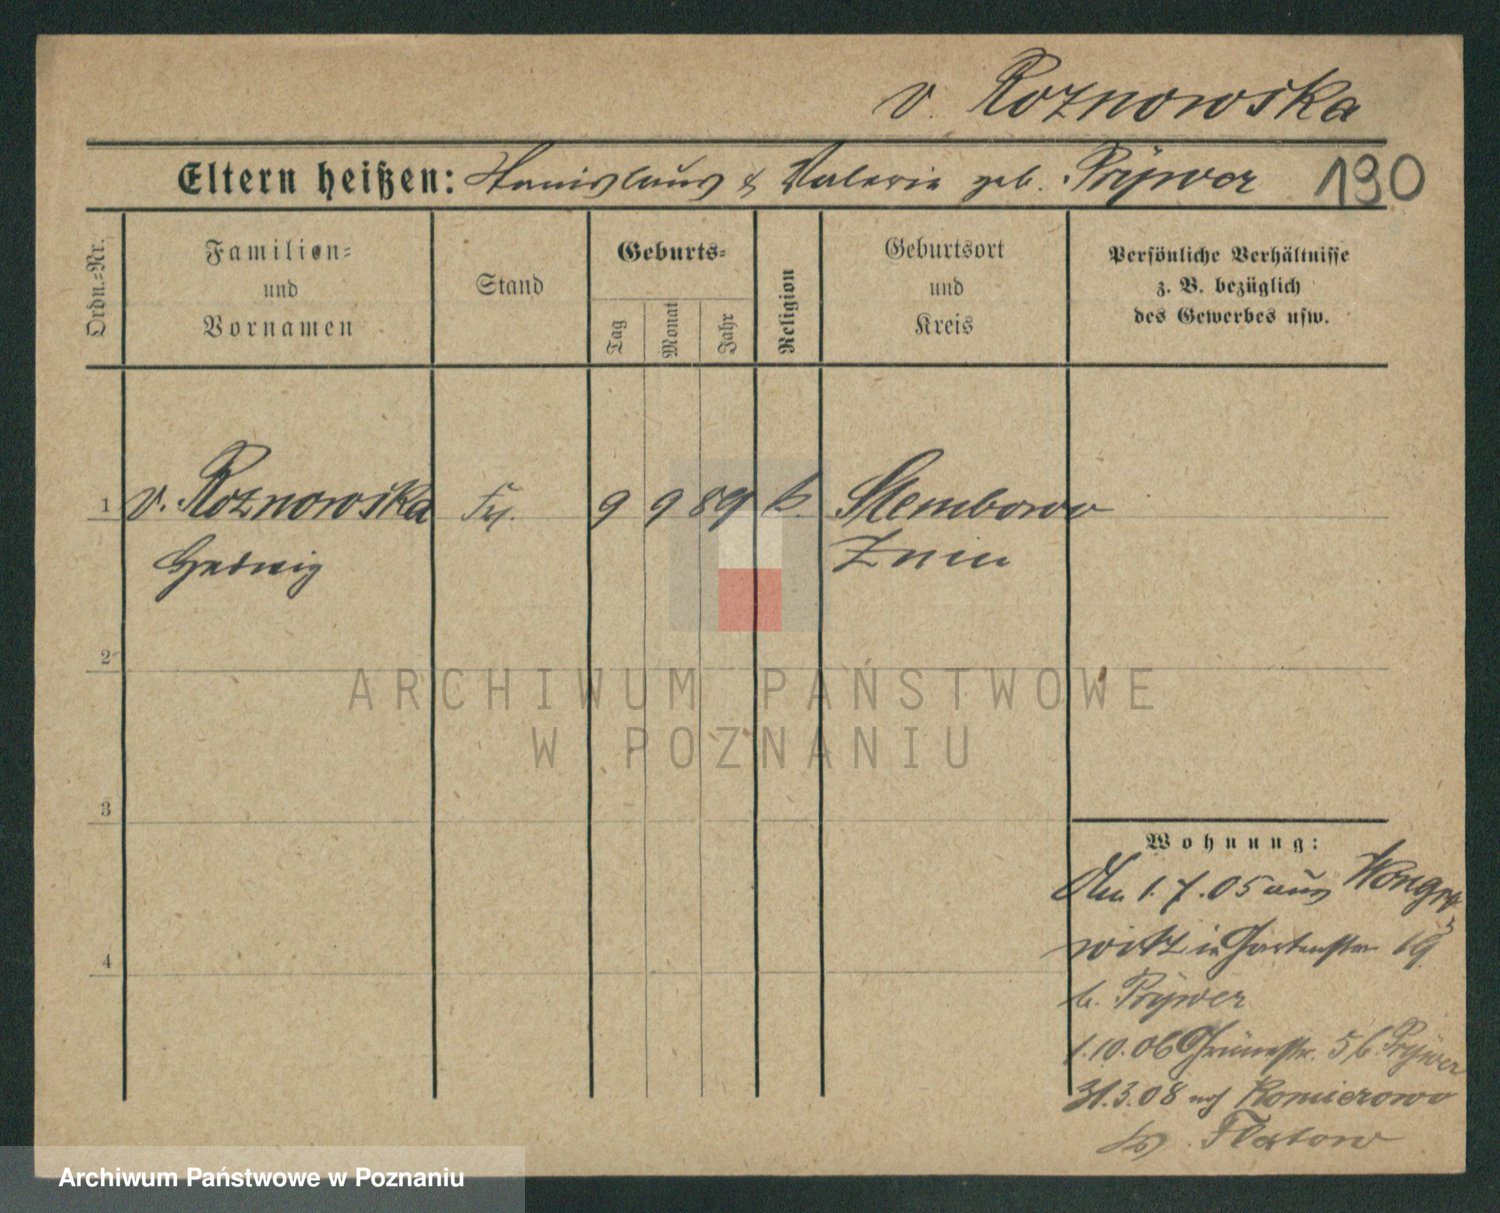 v. Roznowska
Eltern heißen: Stanislaus & Valerie geb. Prÿwer 190
Ordn.=Nr.
Familien=
und
Vornamen
Stand
Geburts=
Tag
Monat
Jahr
Religion
Geburtsort
und
Kreis
Persönliche Verhältnisse
z. B. bezüglich
des Gewerbes usw.
1 v. Roznowska Frl. 9 9 89 k. Slembowo
Hedwig Znin
2
ARCHIWUM PAŃSTWOWE
W POZNANIU
3
Wohnung:
1.7.05 aus Wongro
witz in Gartenstr 19
b. Prÿwer
1.10.06 Grünestr. 5 b. Prÿwer
4
31.3.08 nach Komierowo
Flatow
Archiwum Państwowe w Poznaniu